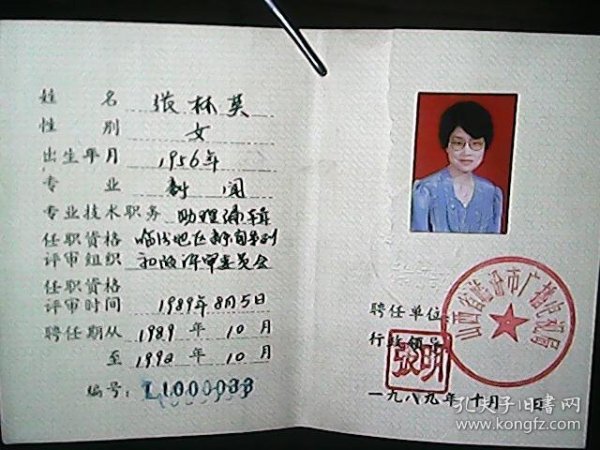 姓名 张林英
性别 女
出生年月 1956年
专业 新闻
专业技术职务 助理编辑
任职资格 临汾地区新闻系列
评审组织 初级评审委员会
任职资格
评审时间 1989年8月5日
聘任期从 1989 年 10 月
至 1992 年 10 月
编号: L1000033
山西省临汾市广播电视局
聘任单位
行政领导
张明
一九八九年十月 日
孔夫子旧书网
www.kongfz.com